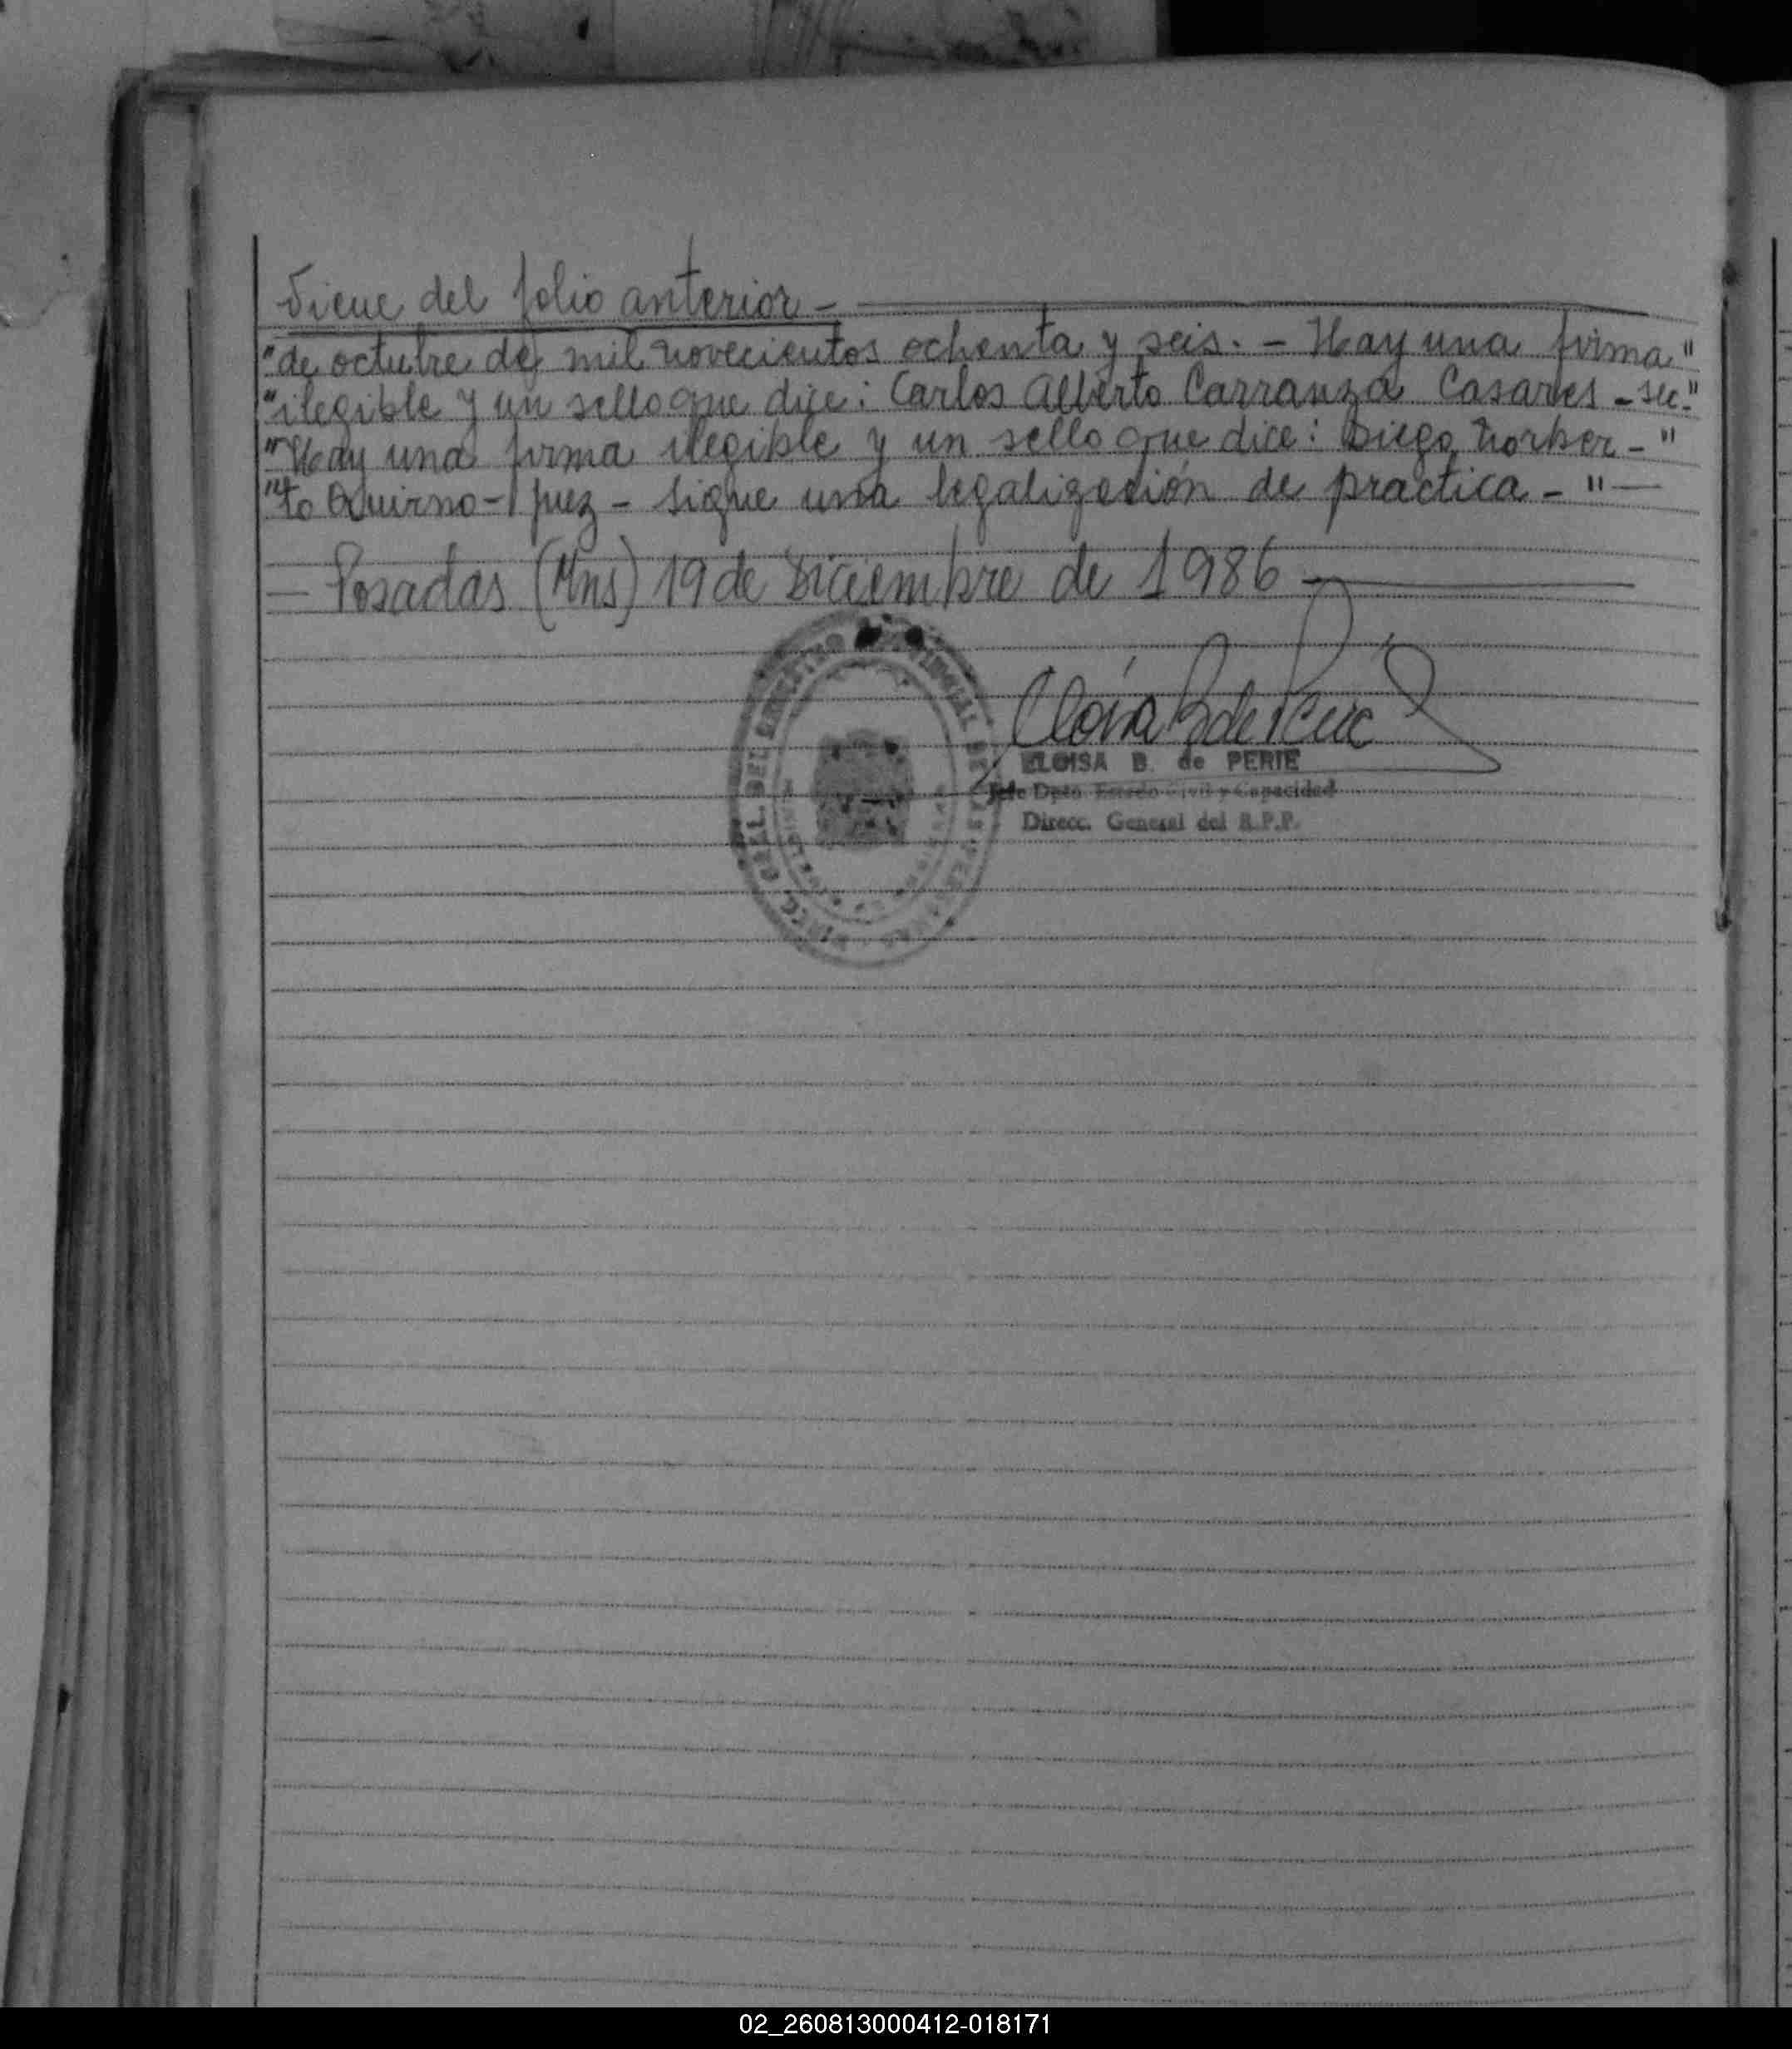 Viene del folio anterior –
"de octubre de mil novecientos ochenta y seis. – Hay una firma"
"ilegible y un sello que dice: Carlos Alberto Carranza Casares – sec."
"Hay una firma ilegible y un sello que dice: Diego Norber – "
"to Quirno – juez – sigue una legalización de practica – " —
— Posadas (Mns) 19 de Diciembre de 1986 –
ELOISA B. de PERIE
Jefe Dpto. Estado Civil y Capacidad
Direcc. General del R.P.P.
02_260813000412-018171